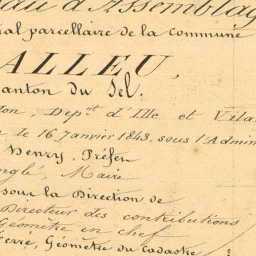 eau d'Assemblag
ral parcellaire de la commune
ALLEU,
anton du Sel.
ton, Dep.t d'Ille et Vila
le 16 Janvier 1843, sous l'Admin
Henry, Préfe
nglé, Maire
sous la Direction de
Directeur des contributions
Géomètre en chef
erre, Géomètre du Cadastre